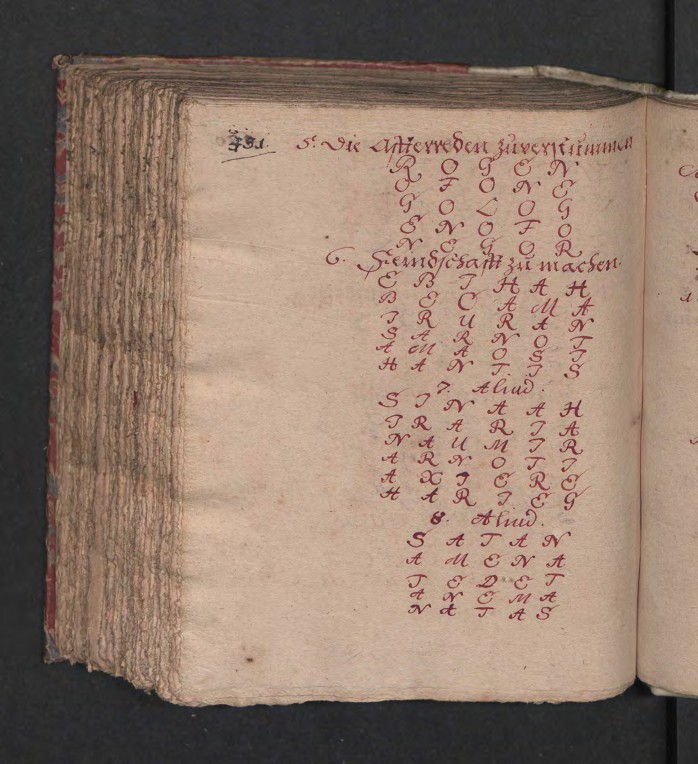 5. Die Affterreden zuverstummen
R O G E N
O F O N E
G O L O G
E N O F O
N E G O R
6. Feindschafft zu machen.
E B I H A H
B E C A M A
I R U R A N
S A R N O T
A M A O S I
H A N T I S
7. Aliud.
S I N A A H
I R A R I A
N A U M I R
A R N O T I
A X I E R E
H A R I E G
8. Aliud.
S A T A N
A M E N A
T E D E T
A N E M A
N A T A S